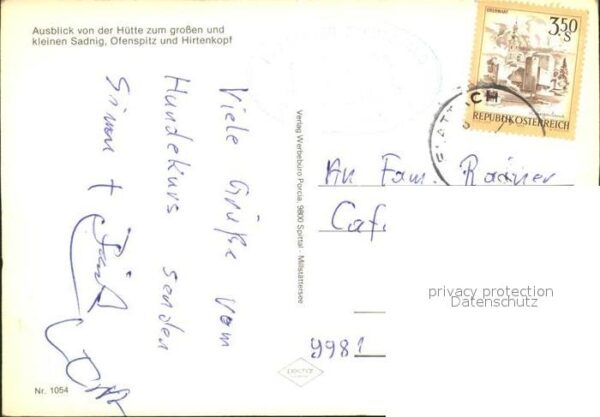 Ausblick von der Hütte zum großen und
kleinen Sadnig, Ofenspitz und Hirtenkopf
Viele Grüße vom
Hundekurs senden
Simon +
Verlag Werbebüro Porcia, 9800 Spittal · Millstättersee
Nr. 1054
3.50 S
REPUBLIK ÖSTERREICH
An Fam. Rainer
Caf.
9981
privacy protection
Datenschutz